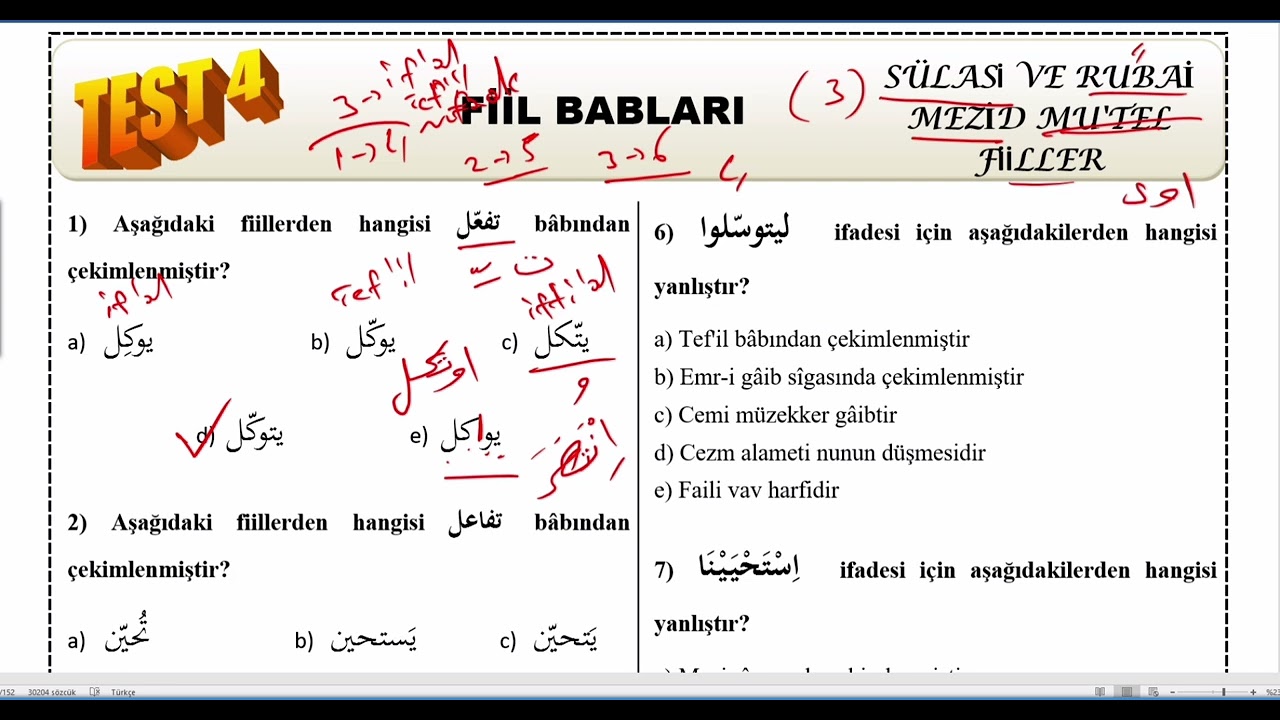 TEST 4
FİİL BABLARI
(3)
SÜLASİ VE RUBAİ
MEZİD MU'TEL
FİİLLER
3→ if'al
tef'il
1→4
2→5
3→6
ا و ی
1) Aşağıdaki fiillerden hangisi تفعّل bâbından
çekimlenmiştir?
if'al
tef'il
ifti'al
a) يوكِل
b) يوكّل
c) يتّكل
اوتكل
و
d) يتوكّل
e) يواكل
6) ليتوسّلوا ifadesi için aşağıdakilerden hangisi
yanlıştır?
a) Tef'il bâbından çekimlenmiştir
b) Emr-i gâib sîgasında çekimlenmiştir
c) Cemi müzekker gâibtir
d) Cezm alameti nunun düşmesidir
e) Faili vav harfidir
2) Aşağıdaki fiillerden hangisi تفاعل bâbından
çekimlenmiştir?
a) تُحيّن
b) يَستحين
c) يَتحيّن
7) اِسْتَحْيَيْنَا ifadesi için aşağıdakilerden hangisi
yanlıştır?
/152 30204 sözcük Türkçe